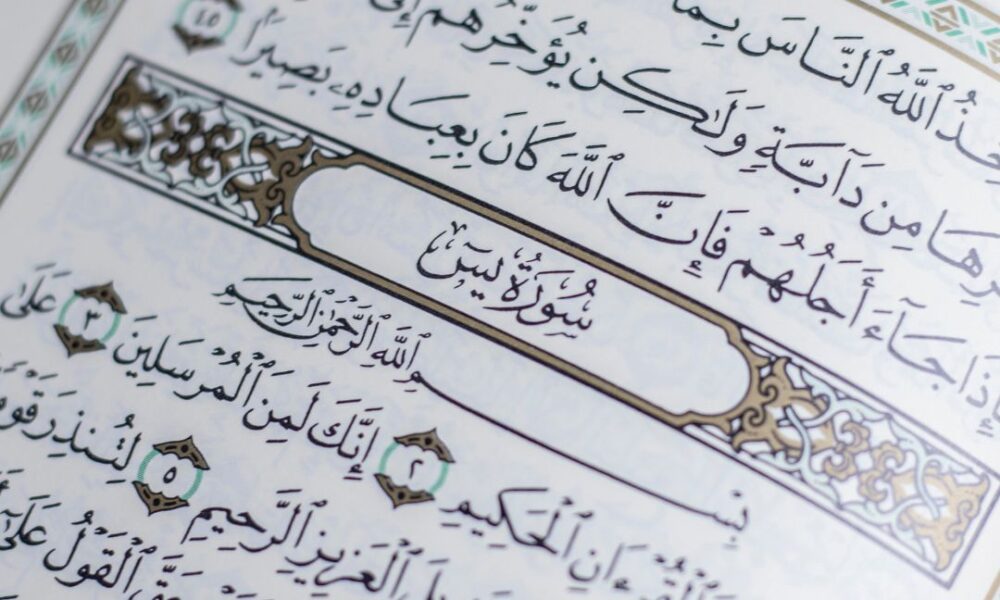 خِذُ ٱللَّهُ ٱلنَّاسَ بِمَا
مِن دَآبَّةٍ وَلَٰكِن يُؤَخِّرُهُمْ إِلَىٰٓ
فَإِذَا جَآءَ أَجَلُهُمْ فَإِنَّ ٱللَّهَ كَانَ بِعِبَادِهِۦ بَصِيرًۢا ٤٥
سُورَةُ يسٓ
بِسْمِ ٱللَّهِ ٱلرَّحْمَٰنِ ٱلرَّحِيمِ
ٱلْحَكِيمِ ٢ إِنَّكَ لَمِنَ ٱلْمُرْسَلِينَ ٣ عَلَىٰ
ٱلْعَزِيزِ ٱلرَّحِيمِ ٥ لِتُنذِرَ قَوْمًا
ٱلْقَوْلُ عَلَىٰٓ